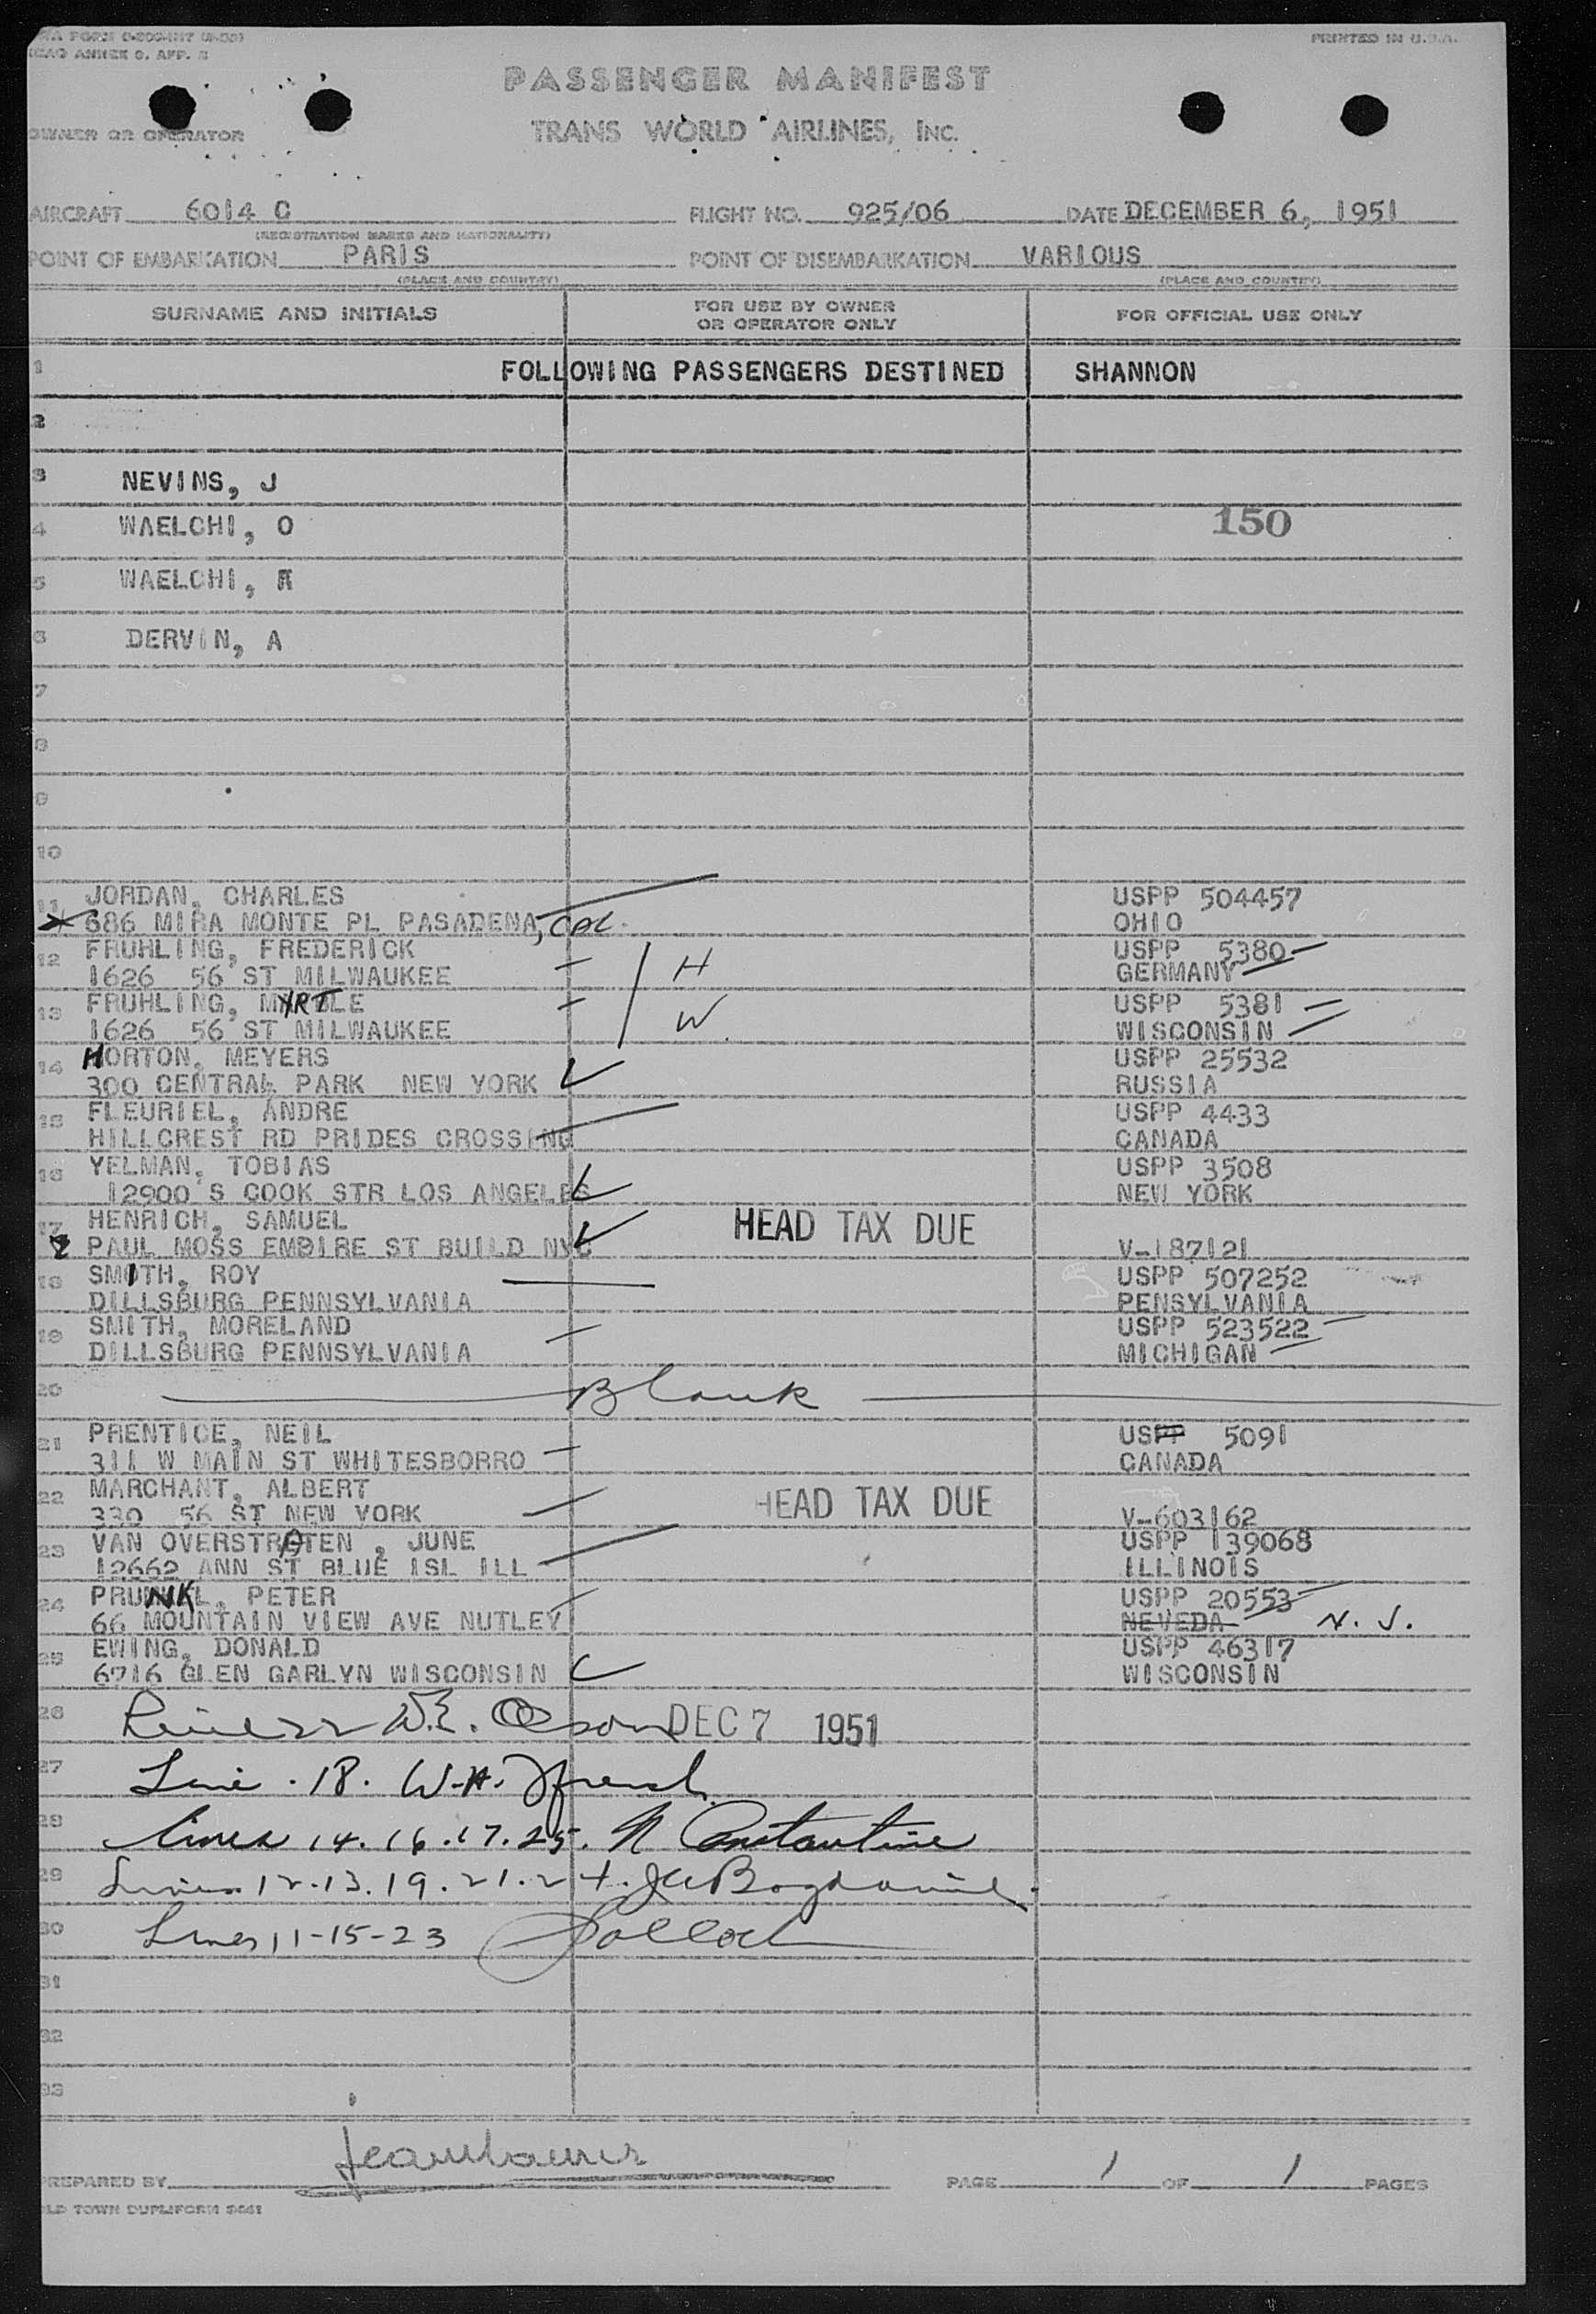 PRINTED IN U.S.A.
ICAO ANNEX 9. APP.
PASSENGER MANIFEST
OWNER OR OPERATOR TRANS WORLD AIRLINES, INC.
AIRCRAFT 6014 C FLIGHT NO. 925/06 DATE DECEMBER 6, 1951
(REGISTRATION MARKS AND NATIONALITY)
POINT OF EMBARKATION PARIS POINT OF DISEMBARKATION VARIOUS
(PLACE AND COUNTRY) (PLACE AND COUNTRY)
SURNAME AND INITIALS FOR USE BY OWNER OR OPERATOR ONLY FOR OFFICIAL USE ONLY
1 FOLLOWING PASSENGERS DESTINED SHANNON
2
3 NEVINS, J
4 WAELCHI, O 150
5 WAELCHI, R
6 DERVIN, A
7
8
9
10
11 JORDAN, CHARLES USPP 504457
686 MIRA MONTE PL PASADENA, CAL. OHIO
12 FRUHLING, FREDERICK H USPP 5380
1626 56 ST MILWAUKEE GERMANY
13 FRUHLING, MYRTLE W USPP 5381
1626 56 ST MILWAUKEE WISCONSIN
14 HORTON, MEYERS USPP 25532
300 CENTRAL PARK NEW YORK RUSSIA
15 FLEURIEL, ANDRE USPP 4433
HILLCREST RD PRIDES CROSSING CANADA
16 YELMAN, TOBIAS USPP 3508
12900 S COOK STR LOS ANGELES NEW YORK
17 HENRICH, SAMUEL HEAD TAX DUE
PAUL MOSS EMPIRE ST BUILD NYC V-187121
18 SMITH, ROY USPP 507252
DILLSBURG PENNSYLVANIA PENSYLVANIA
19 SMITH, MORELAND USPP 523522
DILLSBURG PENNSYLVANIA MICHIGAN
20 Blank
21 PRENTICE, NEIL USPP 5091
311 W MAIN ST WHITESBORRO CANADA
22 MARCHANT, ALBERT HEAD TAX DUE
330 56 ST NEW YORK V-603162
23 VAN OVERSTRATEN , JUNE USPP 139068
12662 ANN ST BLUE ISL ILL ILLINOIS
24 PRUNKL, PETER USPP 20553
66 MOUNTAIN VIEW AVE NUTLEY NEVEDA N. J.
25 EWING, DONALD USPP 46317
6716 GLEN GARLYN WISCONSIN WISCONSIN
26 Line 22 W.E. Olson DEC 7 1951
27 Line . 18. W.H. French
28 Lines 14. 16. 17. 25. N Constantine
29 Lines 12. 13. 19. 21. 24.
30 Lines 11-15-23 Pollock
31
32
33
PREPARED BY PAGE 1 OF 1 PAGES
OLD TOWN DUPLIFORM